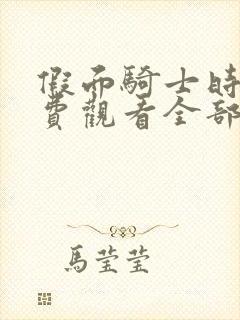 假面騎士時
費觀看全部
馬瑩瑩